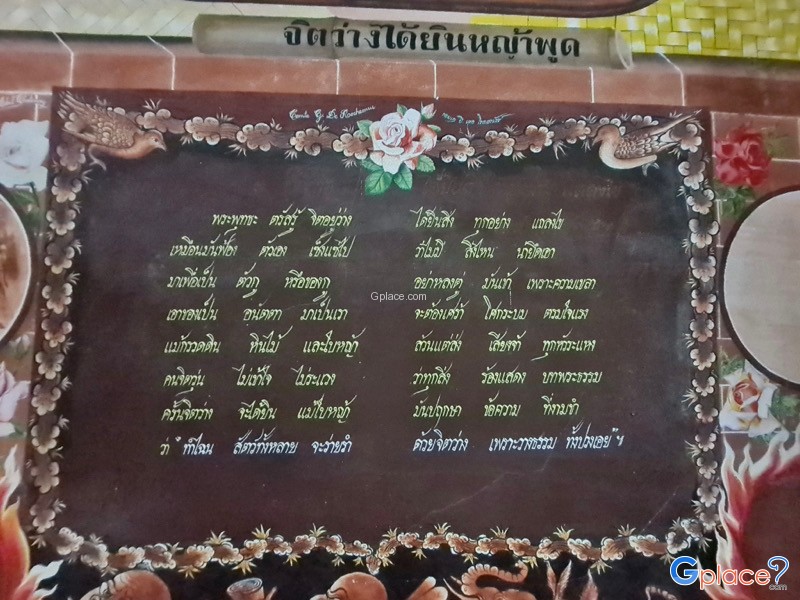 จิตว่างได้ยินหญ้าพูด
พระพุทธะ ตรัสรู้ จิตอยู่ว่าง ได้ยินสิ่ง ทุกอย่าง แถลงไข
เหมือนมันฟ้อง ตัวเอง เซ็งแซ่ไป ว่าไม่มี สิ่งไหน น่ายึดเอา
มาเพื่อเป็น ตัวกู หรือของกู อย่าหลงตู่ มันเข้า เพราะความเขลา
เอาของเป็น อนัตตา มาเป็นเรา จะต้องเศร้า โศกระบม ตรมใจแรง
แม้กรวดดิน หินไม้ และใบหญ้า ล้วนแต่ส่ง เสียงจ้า ทุกหัวระแหง
คนจิตวุ่น ไม่เข้าใจ ไม่ระแวง ว่าทุกสิ่ง ร้องแสดง บทพระธรรม
ครั้นจิตว่าง จะได้ยิน แม้ใบหญ้า มันปรึกษา ข้อความ ที่งามขำ
ว่า "ทำไฉน สัตว์ทั้งหลาย จะร่ายรำ ด้วยจิตว่าง เพราะวางธรรม ทั้งปวงเอย" ฯ
Gplace.com
Gplace?.com